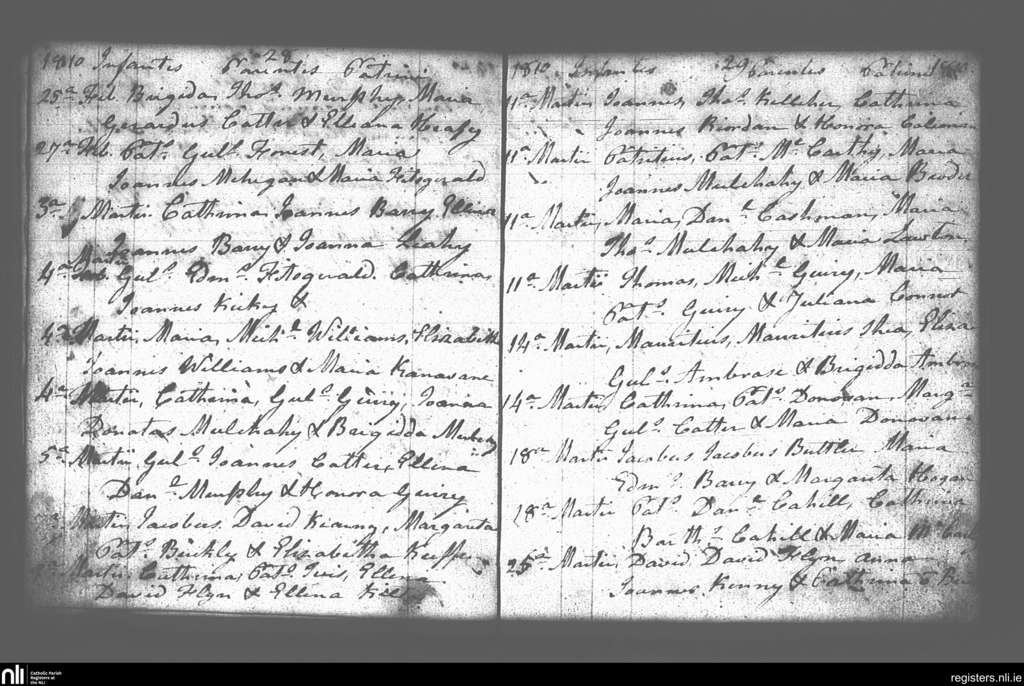 1810 Infantes 28 Parentis Patrini
25a Feb. Brigida, Thos. Murphy, Maria
Gerardus Cotter & Elliana Heafy
27a Feb. Pats. Gulo. Forrest, Maria
Joannes Mehegan & Maria Fitzgerald
3a Martii. Cathrina, Joannes Barry, Ellina
Joannes Barry & Joanna Leahy
4a Martii Gulo. Edmo. Fitzgerald. Cathrina,
Joannes &
4a Martii, Maria, Michl. Williams, Elizabeth
Joannes Williams & Maria Kanavane
4a Martii, Catharina, Gulo. Geiry, Joanna
Donatas Mulchahy & Brigidda
5a Martii Gulo. Joannes Cotter, Ellina
Danl. Murphy & Honora Guiry
Martii, Jacobus. David Kianny, Margarita
Pats. Buckly & Elizabetha Keiffe
Martii, Cathrina, Pats. Ellena
David Flyn & Ellena
1810 Infantes 29 Parentes Patrini
11a Martii, Joannes, Thos. Kelliher, Cathrina
Joannes Riordan & Honora
11a Martii Patritius, Pats. Mc. Carthy, Maria
Joannes Mulchahy & Maria
11a Martii, Maria, Danl. Cashman, Maria
Thos. Mulchahy & Maria Lawton
11a Martii Thomas, Michl. Guiry, Maria
Pats. Guiry & Juliana Connor
14a Martii, Mauritius, Mauritius Shea, Eliza
Gulo. Ambrose & Brigidda Ambrose
14a Martii, Cathrina, Pats. Donovan, Marga
Gulo. Cotter & Maria Donovan
18a Martii Jacobus Jacobus Buttler Maria
Edmo. Barry & Margarita Hogan
18a Martii Pats. Danl. Cahill, Cathrina
Barths. Cahill & Maria
25a Martii, David David Flyn anna
Joannes Kenny & Cathrina
nli
Catholic Parish
Registers at
the NLI
registers.nli.ie